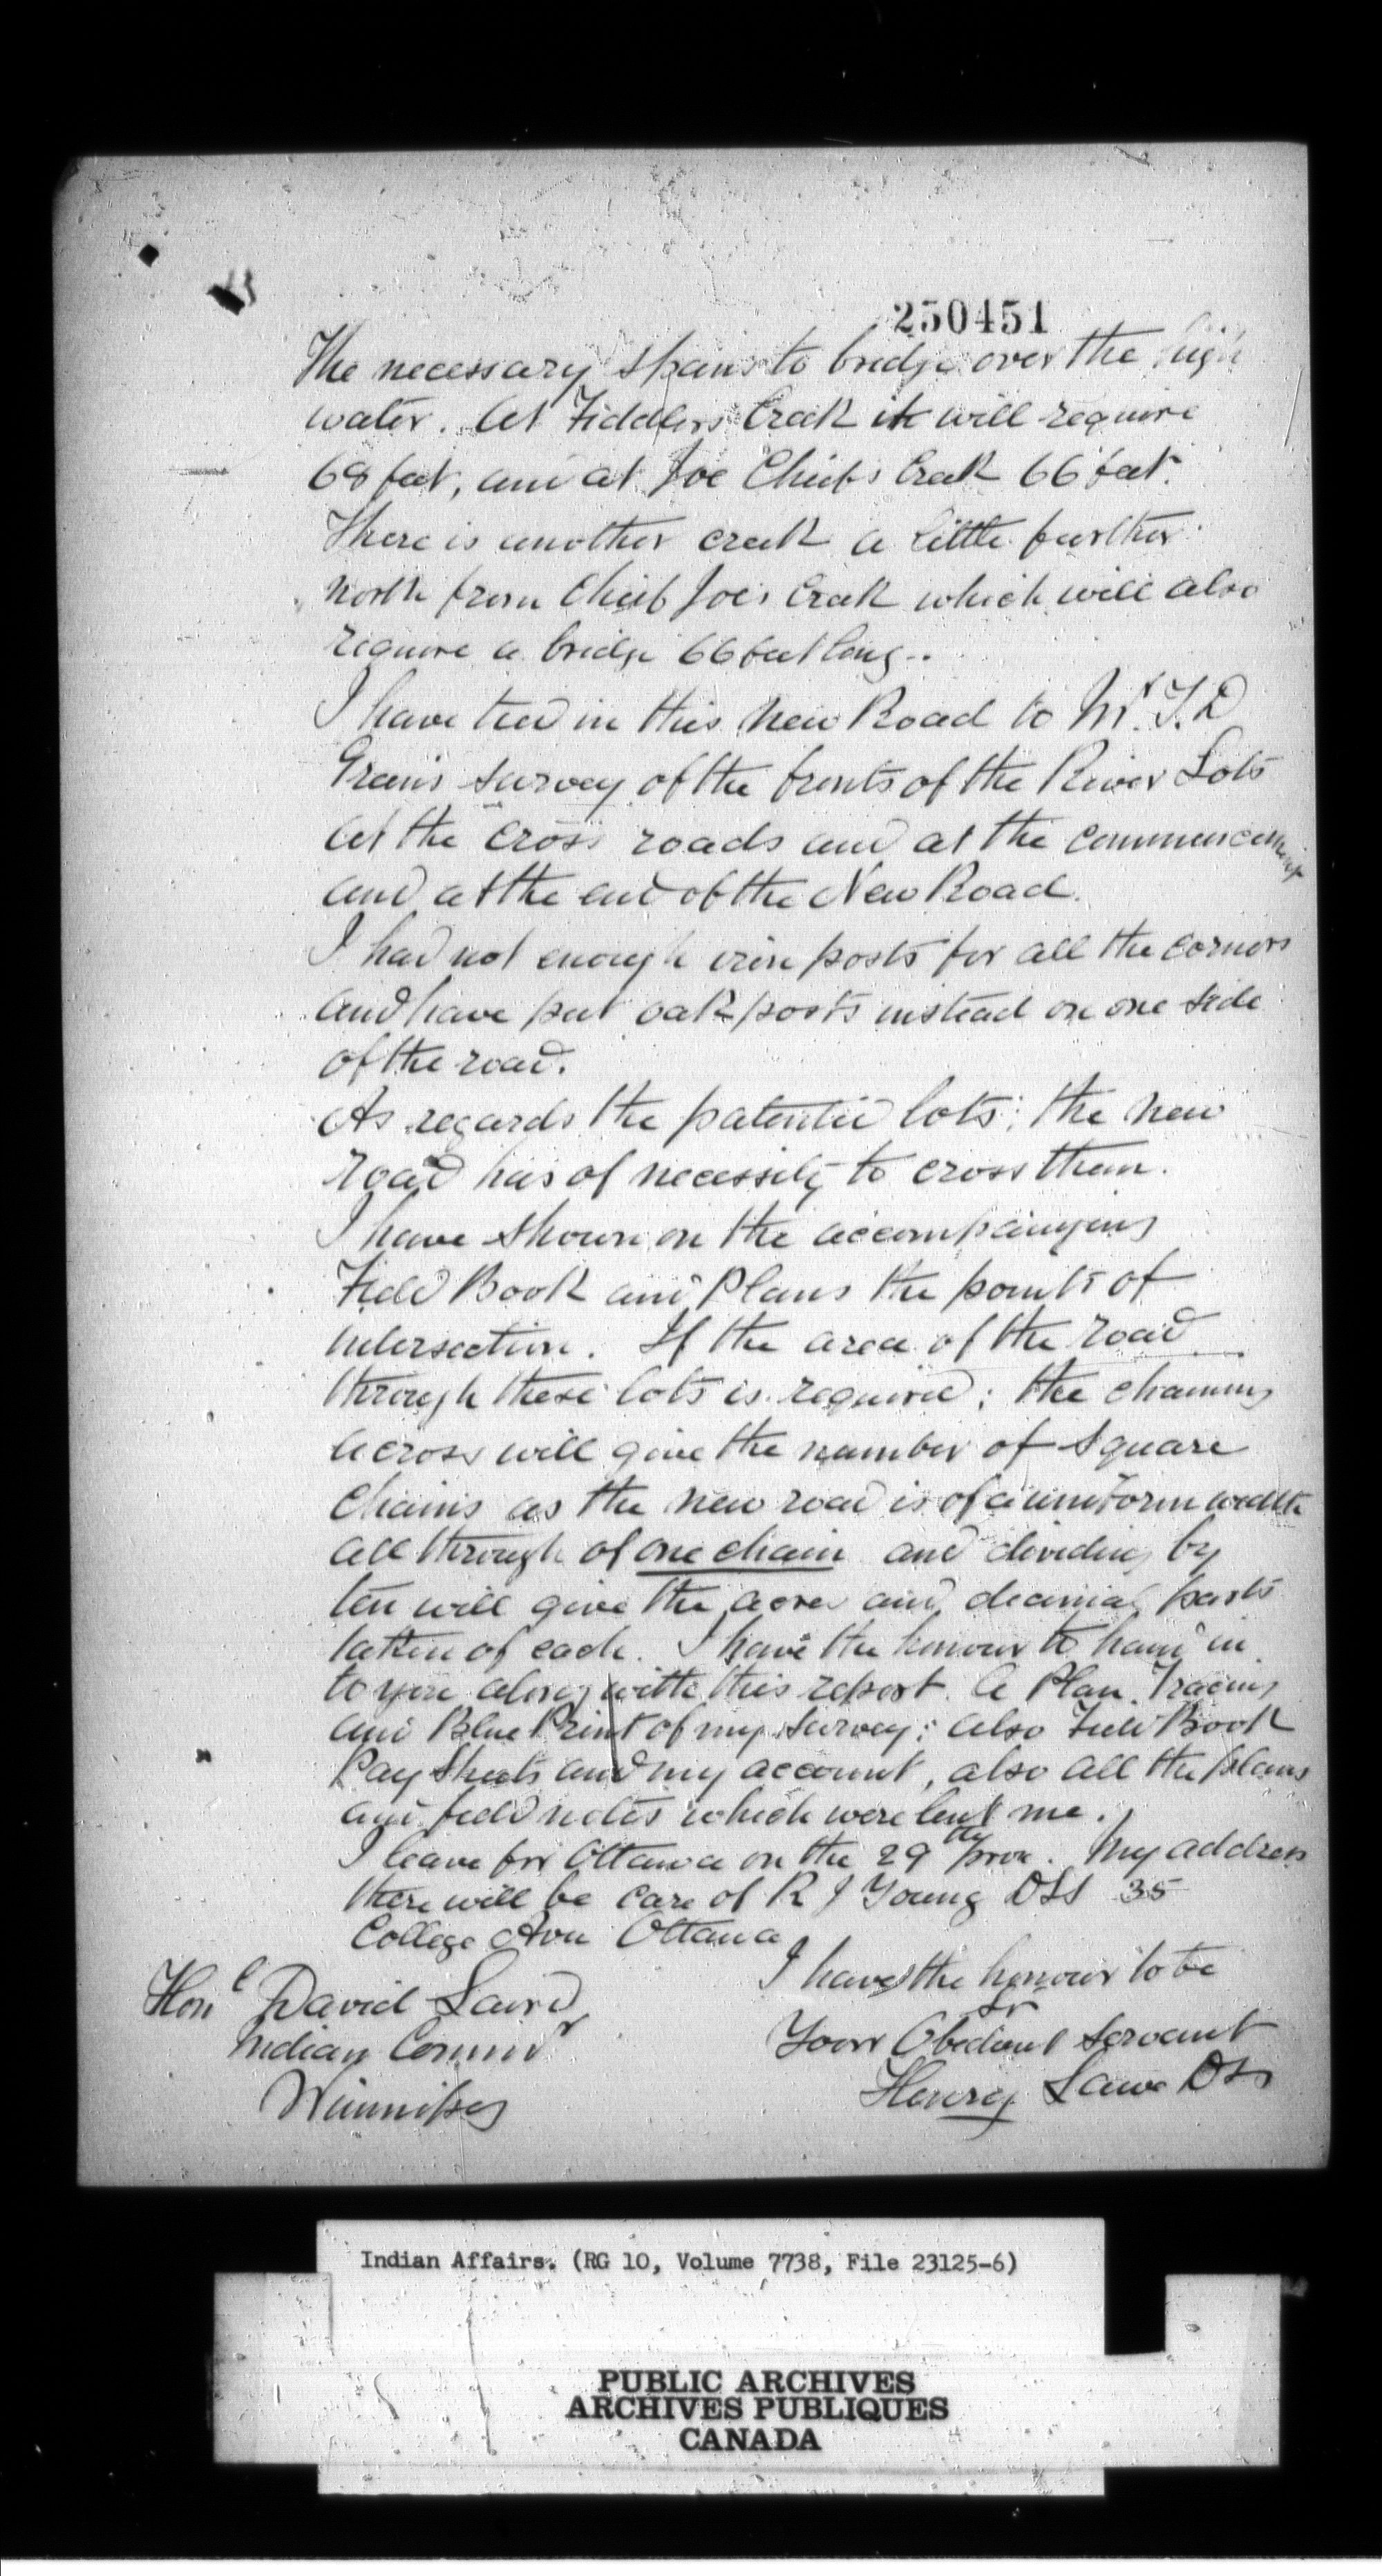 250451
The necessary spans to bridge over the high
water. At Fiddlers Creek it will require
68 feet, and at Joe Chiefs Creek 66 feet.
There is another creek a little further
north from Chief Joe's Creek which will also
require a bridge 66 feet long..
I have tied in this New Road to Mr. T.D
Green's survey of the fronts of the River Lots
at the cross roads and at the commencement
and at the end of the New Road.
I had not enough iron posts for all the corners
and have put oak posts instead on one side
of the road.
As regards the patented lots; the new
road has of necessity to cross them.
I have shown on the accompanying
Field Book and Plans the points of
intersection. If the area of the road
through these lots is required; the chaining
across will give the number of square
chains as the new road is of a uniform width
all through of one chain and dividing by
ten will give the acres and decimal parts
taken of each. I have the honour to hand in
to you along with this report. A Plan, Tracing
and Blue Print of my survey; also Field Book
Pay Sheets and my account, also all the plans
and field notes which were lent me.
I leave for Ottawa on the 29th prox. My address
there will be care of R J Young DLS 35
College Ave Ottawa
I have the honour to be
Sr
Your Obedient Servant
Henry Lawe DLS
Honl David Laird
Indian Commr
Winnipeg
Indian Affairs. (RG 10, Volume 7738, File 23125-6)
PUBLIC ARCHIVES
ARCHIVES PUBLIQUES
CANADA